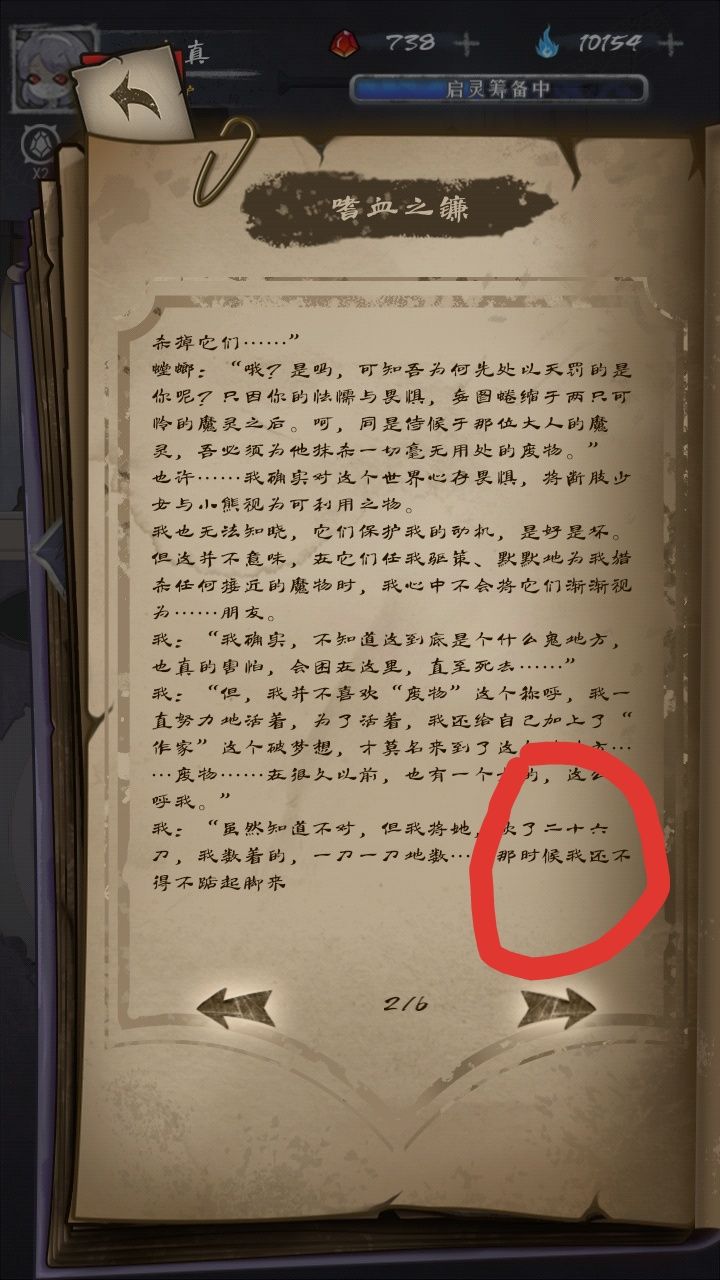 真
738
10154
启灵筹备中
X2
嗜血之镰
杀掉它们……”
螳螂：“哦？是吗，可知吾为何先处以天罚的是
你呢？只因你的怯懦与畏惧，妄图蜷缩于两只可
怜的魔灵之后。呵，同是侍候于那位大人的魔
灵，吾必须为他抹杀一切毫无用处的废物。”
也许……我确实对这个世界心存畏惧，将断肢少
女与小熊视为可利用之物。
我也无法知晓，它们保护我的动机，是好是坏。
但这并不意味，在它们任我驱策、默默地为我猎
杀任何接近的魔物时，我心中不会将它们渐渐视
为……朋友。
我：“我确实，不知道这到底是个什么鬼地方，
也真的害怕，会困在这里，直至死去……”
我：“但，我并不喜欢“废物”这个称呼，我一
直努力地活着，为了活着，我还给自己加上了“
作家”这个破梦想，才莫名来到了这…
…废物……在很久以前，也有一个的，这么
呼我。”
我：“虽然知道不对，但我将她，了二十六
刀，我数着的，一刀一刀地数…那时候我还不
得不踮起脚来
2/6